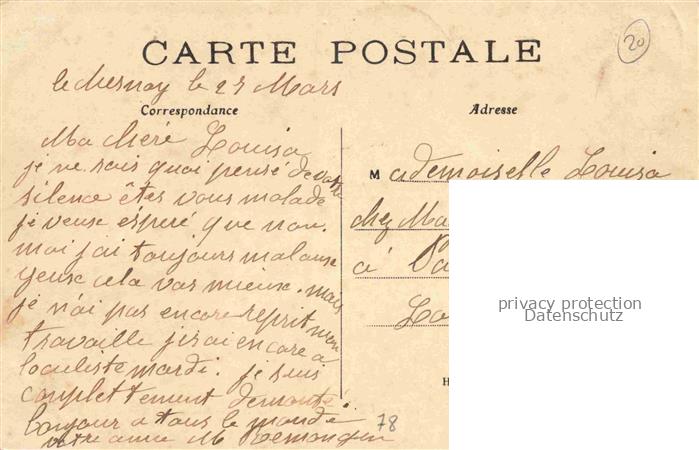 CARTE POSTALE
20
le Mesnay le 27 Mars
Correspondance
Adresse
Ma Chéré Louisa
je ne sais quoi pensé de votre
silence êtes vous malade
je veuse espéré que non.
moi jai toujours mal aux
yeuse cela vas mieux. mais
je n'ai pas encore reprit mon
travaille jirai encore a
loculiste mardi. je suis
complettement démonté.
bonjour a tous le monde
votre amie M
78
Mademoiselle Louisa
chez Ma
à
privacy protection
Datenschutz